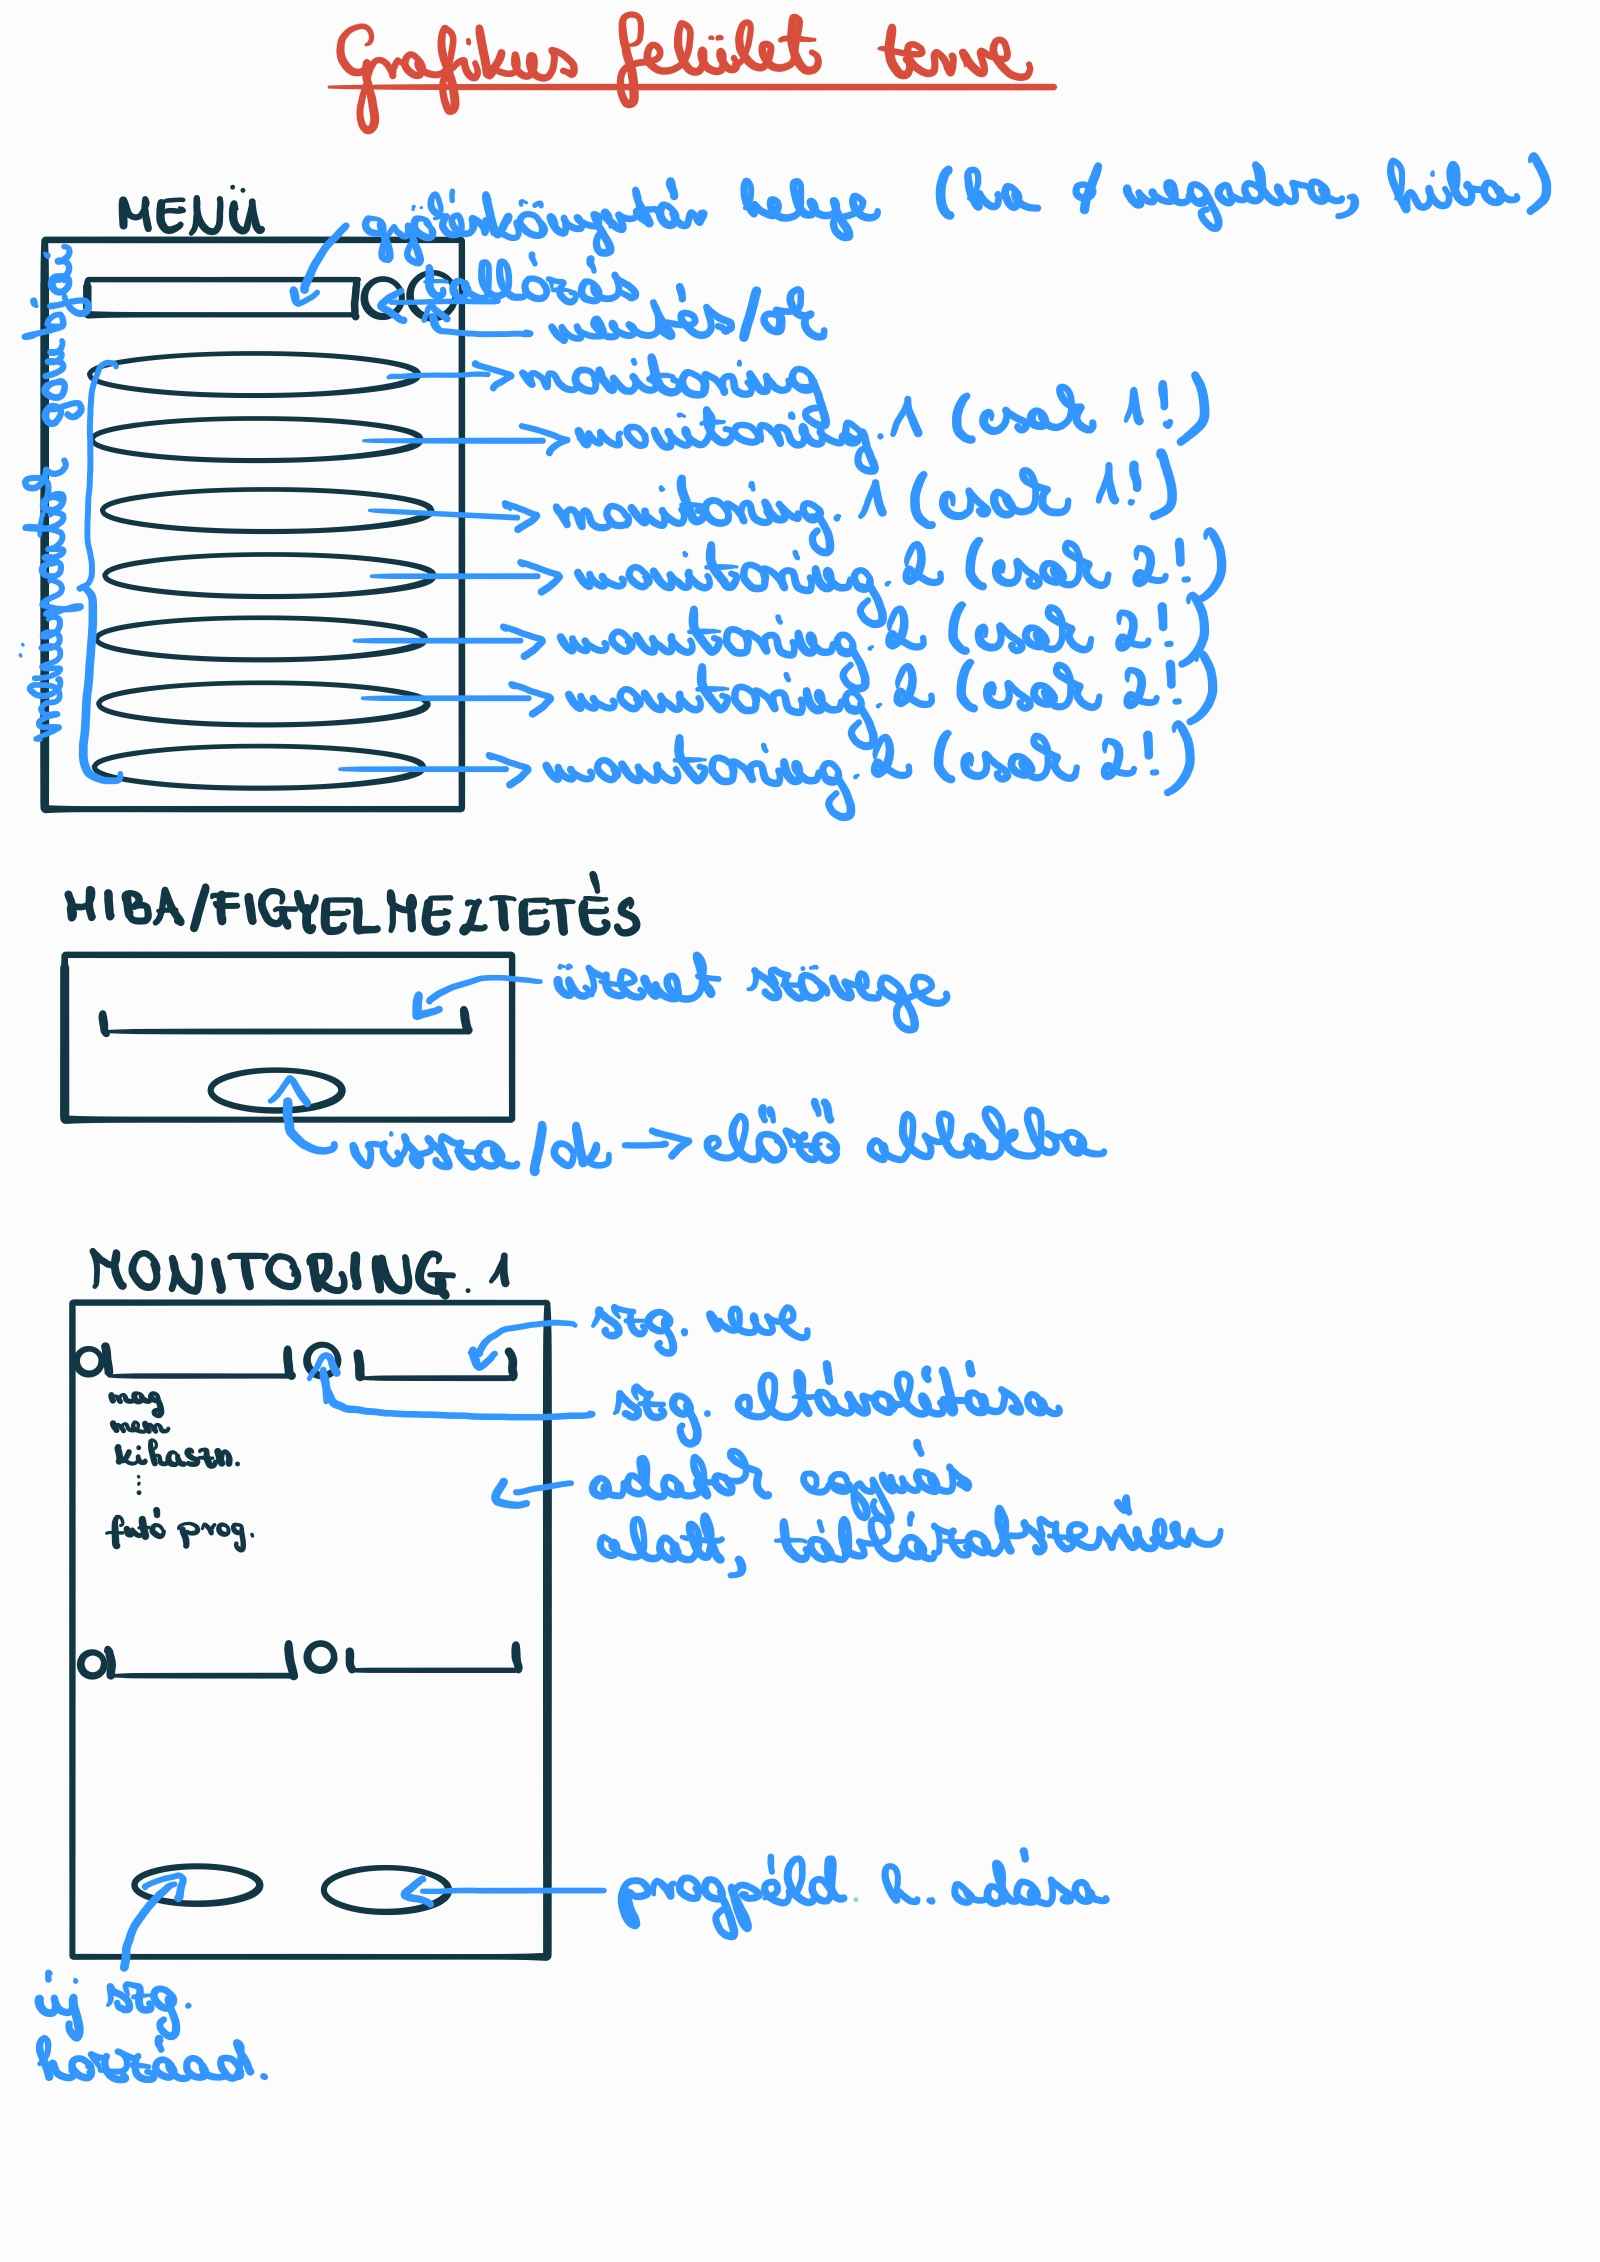 Grafikus felület terve
MENÜ
gyökérkönyvtár helye (ha ∉ megadva, hiba)
tallózás
mentés/ok
monitoring
monitoring. 1 (csak 1!)
monitoring. 1 (csak 1!)
monitoring. 2 (csak 2!)
monitoring. 2 (csak 2!)
monitoring. 2 (csak 2!)
monitoring. 2 (csak 2!)
gombjai
HIBA/FIGYELMEZTETÉS
üzenet szövege
vissza/ok → előző ablakba
MONITORING. 1
szg. neve
mag
mem
kihaszn.
⋮
futó prog.
szg. eltávolítása
adatok egymás
alatt, táblázatszerűen
progpéld. h. adása
új szg.
hozzáad.